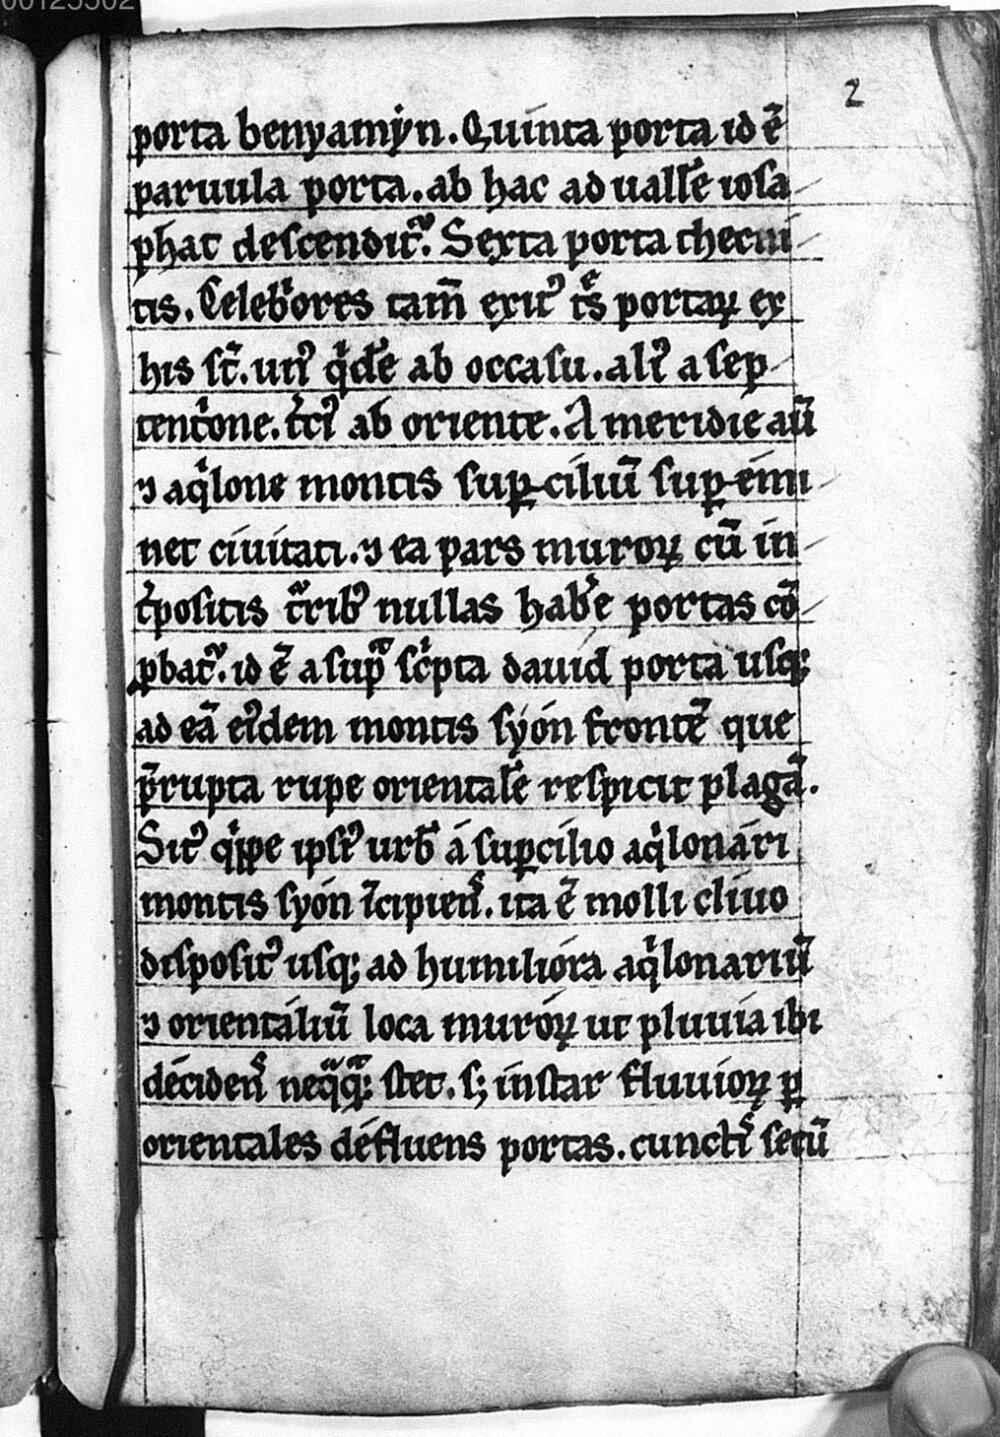 00125502
2
porta benyamẏn. Quinta porta id ē
paruula porta. ab hac ad uallē iosa
phat descendit᷑. Sexta porta thecui
tis. Celeb̾ores tam̄ exitꝰ tͤs portaꝝ ex
his st̄. unꝰ qͥdē ab occasu. altꝰ a sep
tentͥone. t̾ciꝰ ab oriente. A meridie aū
⁊ aqͥlone montis suꝑciliū suꝑemi
net ciuitati. ⁊ ea pars muroꝝ cū in
t̾positis t᷑ribꝰ nullas habē portas cō
ꝓbat᷑. id ē a sup̄ scͥpta dauid porta usqꝫ
ad eā eiꝰdem montis syón frontē que
p̄rupta rupe orientalē respicit plagā.
Sitꝰ qͥppe ipsiꝰ urb̄ á suꝑcilio aqͥlonári
montis syón īcipiens. ita ē molli cliuo
dispositꝰ usqꝫ ad humilióra aqͥlonariū
⁊ orientáliū loca muróꝝ ut pluuia ibi
décidens neqᷓqᷓꝫ stet. sꝫ instar fluuioꝝ ꝑ
orientales défluens portas. cunctͥ secū